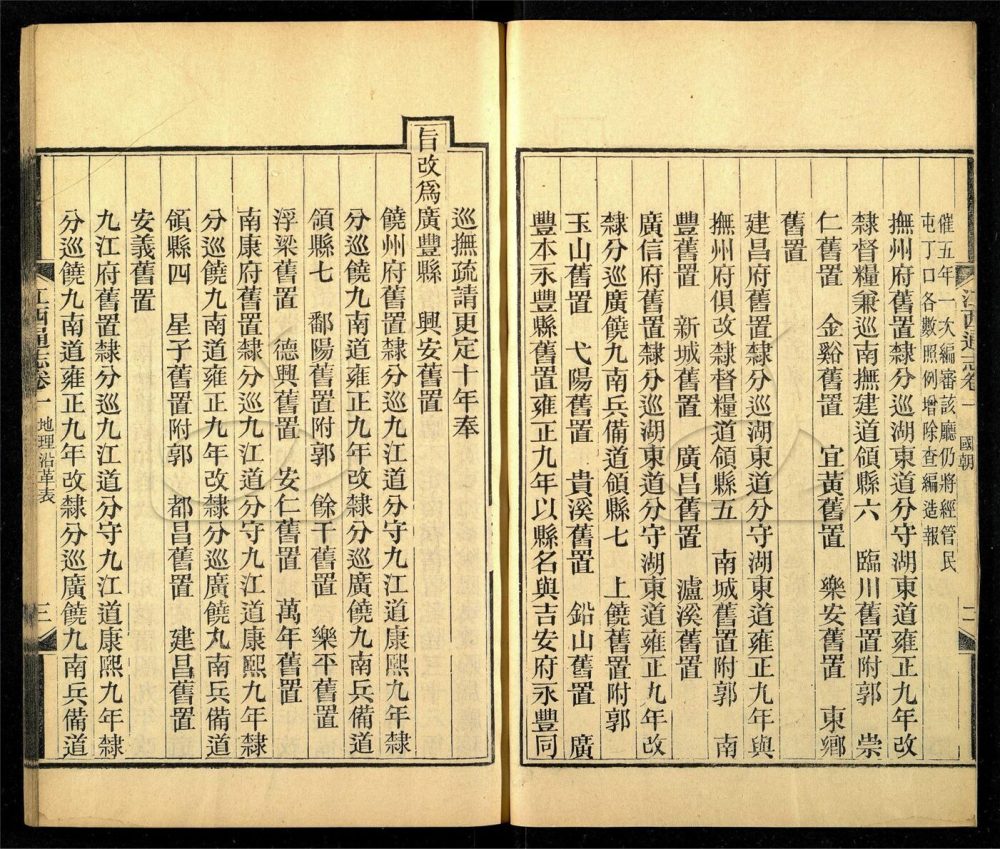 催五年一次編審該廳仍將經管民
屯丁口各數照例增除查編造報
撫州府舊置隸分巡湖東道分守湖東道雍正九年改
隸督糧兼巡南撫建道領縣六　臨川舊置附郭　崇
仁舊置　金谿舊置　宜黃舊置　樂安舊置　東鄉
舊置
建昌府舊置隸分巡湖東道分守湖東道雍正九年與
撫州府俱改隸督糧道領縣五　南城舊置附郭　南
豐舊置　新城舊置　廣昌舊置　瀘溪舊置
廣信府舊置隸分巡湖東道分守湖東道雍正九年改
隸分巡廣饒九南兵備道領縣七　上饒舊置附郭
玉山舊置　弋陽舊置　貴溪舊置　鉛山舊置　廣
豐本永豐縣舊置雍正九年以縣名與吉安府永豐同
江西通志卷一　國朝　二
巡撫疏請更定十年奉
旨改爲廣豐縣　興安舊置
饒州府舊置隸分巡九江道分守九江道康熙九年隸
分巡饒九南道雍正九年改隸分巡廣饒九南兵備道
領縣七　鄱陽舊置附郭　餘干舊置　樂平舊置
浮梁舊置　德興舊置　安仁舊置　萬年舊置
南康府舊置隸分巡九江道分守九江道康熙九年隸
分巡饒九南道雍正九年改隸分巡廣饒九南兵備道
領縣四　星子舊置附郭　都昌舊置　建昌舊置
安義舊置
九江府舊置隸分巡九江道分守九江道康熙九年隸
分巡饒九南道雍正九年改隸分巡廣饒九南兵備道
江西通志卷一　地理沿革表　三